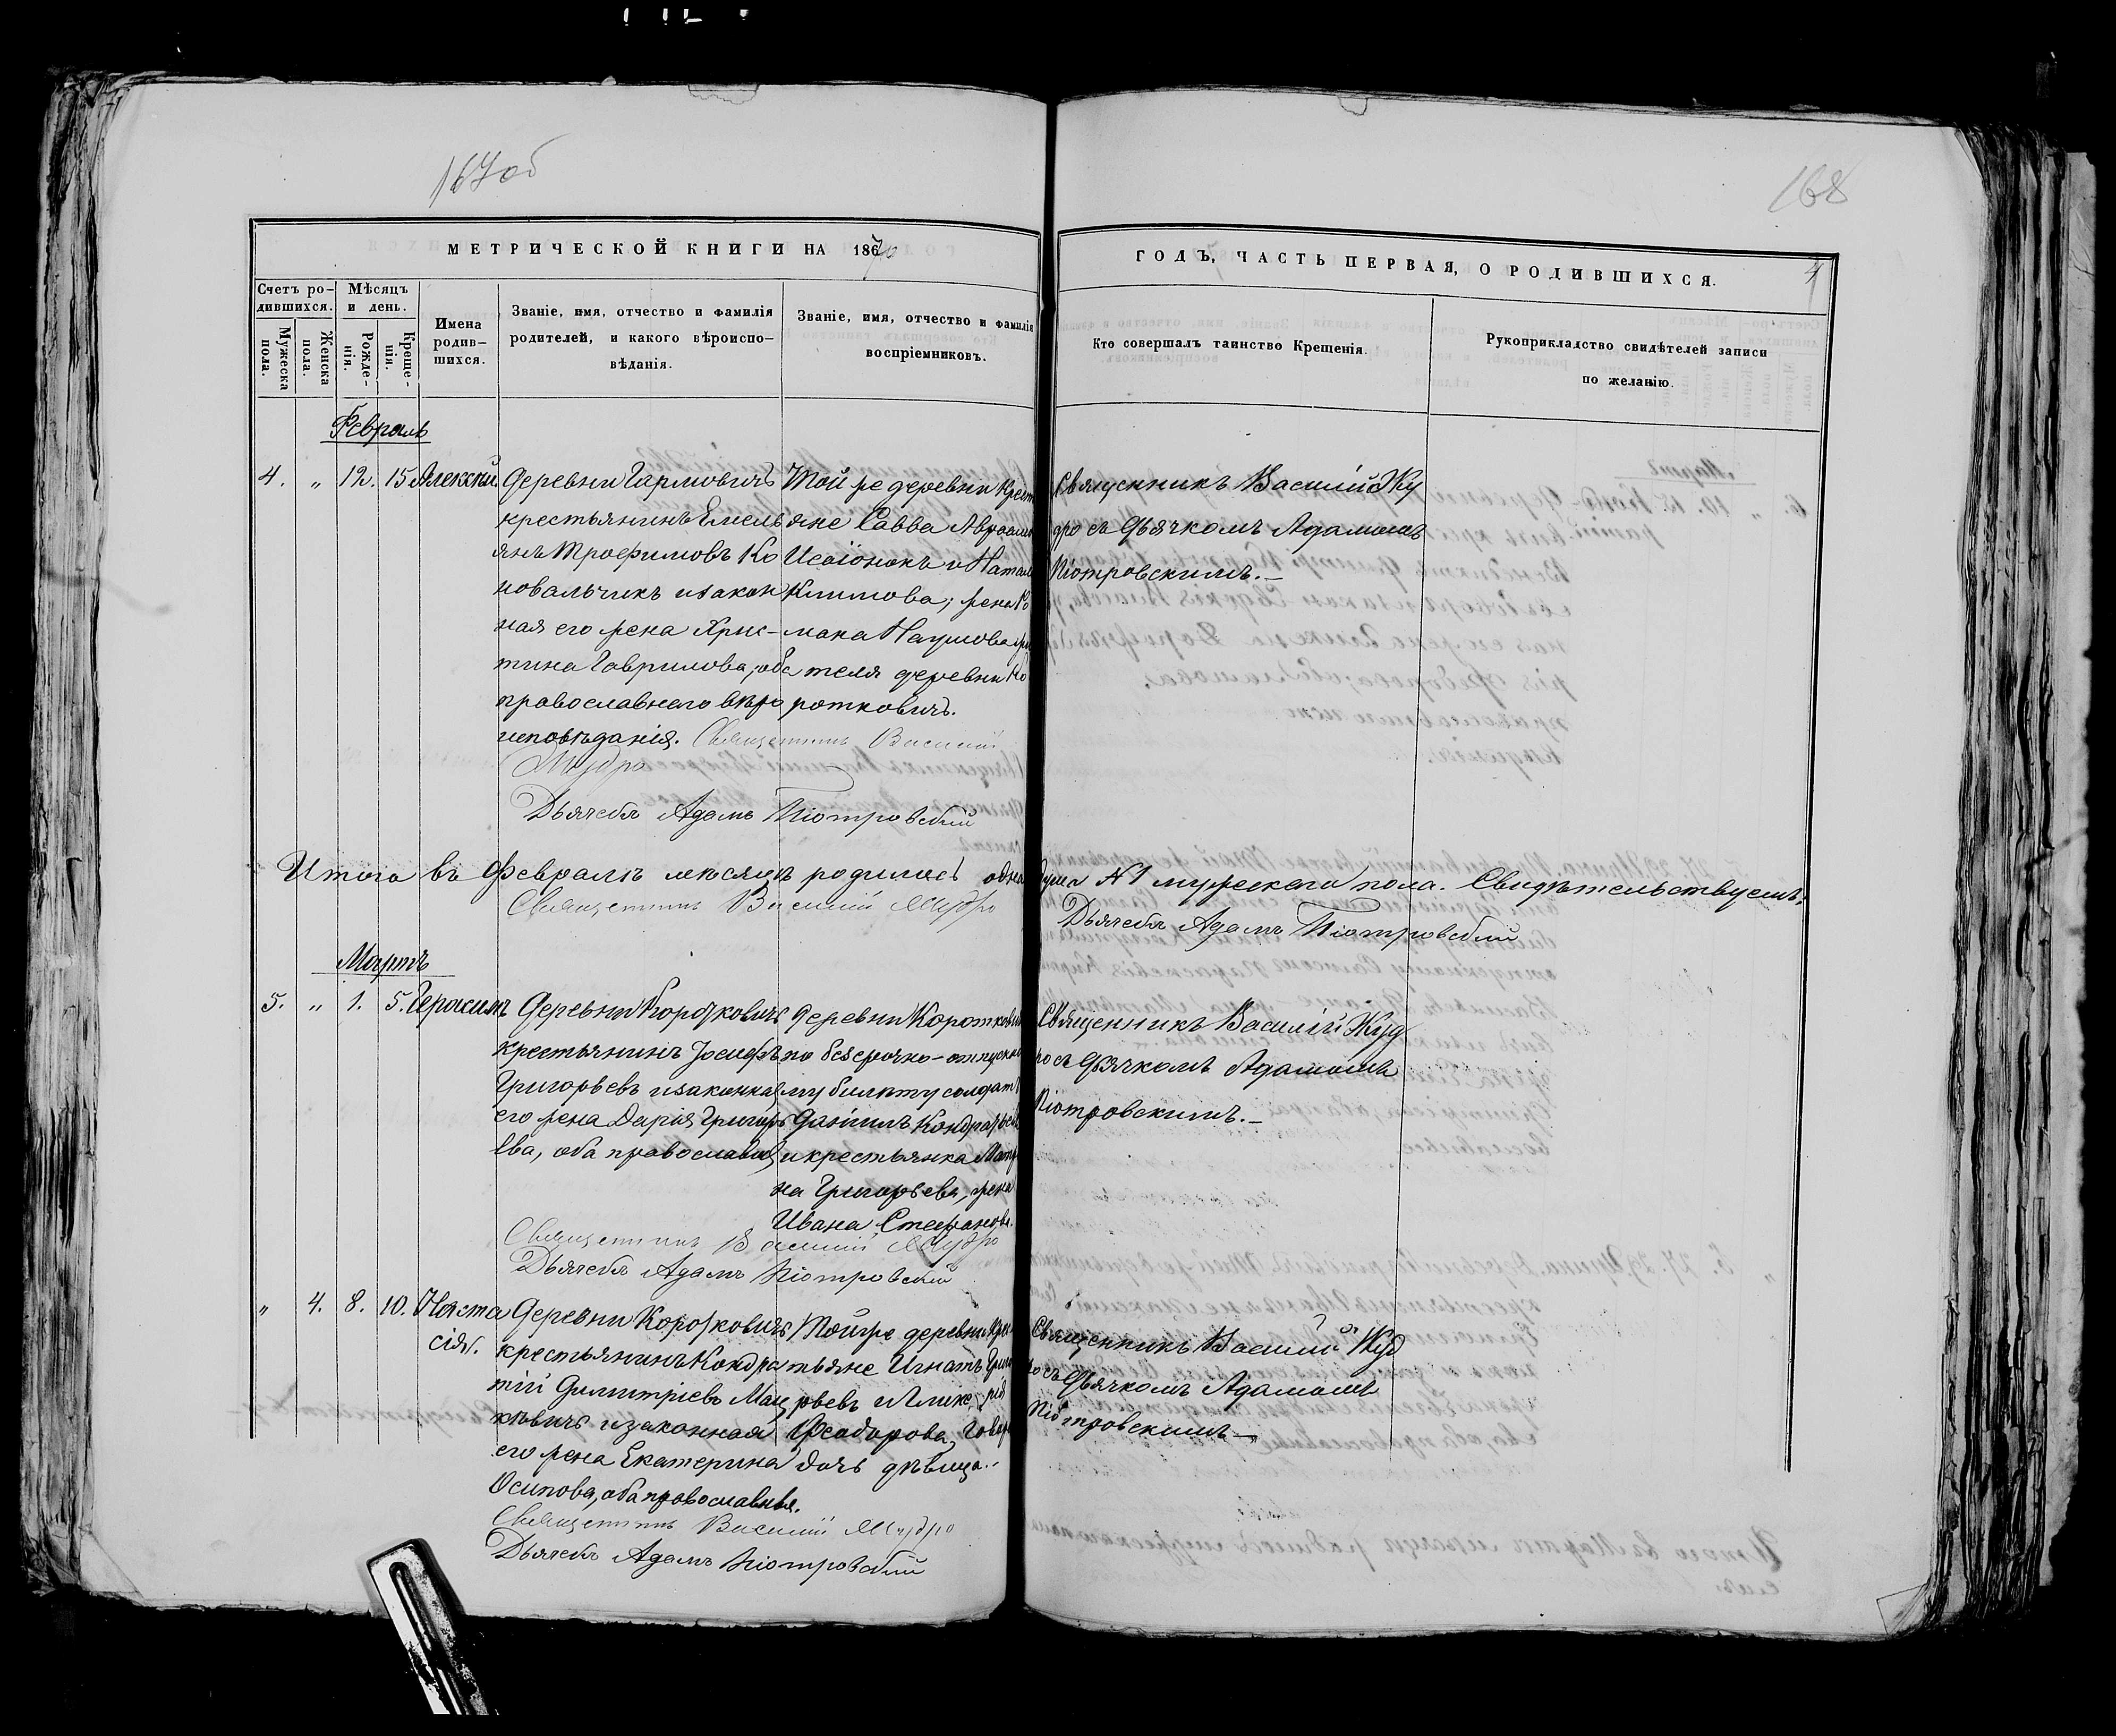 167об
168
МЕТРИЧЕСКОЙ КНИГИ НА 1870
ГОДЪ, ЧАСТЬ ПЕРВАЯ, О РОДИВШИХСЯ.
4
Счетъ ро-
дившихся.
Мужеска
пола.
Женска
пола.
Мѣсяцъ
и день.
Рожде-
нія.
Креще-
нія.
Имена
родив-
шихся.
Званіе, имя, отчество и фамилія
родителей, и какого вѣроиспо-
вѣданія.
Званіе, имя, отчество и фамилія
воспріемниковъ.
Кто совершалъ таинство Крещенія.
Рукоприкладство свидѣтелей записи
по желанію.
Февраль
4. „ 12. 15 Алексій.
Деревни Гармовичъ
крестьянинъ Емель
янъ Трофимовъ Ко
новальчикъ и закон
ная его жена Хрис-
тина Гаврилова, оба
православнаго вѣро
исповѣданія.
Той же деревни крест
яне Савва Авраам
Исаіонокъ и Натал
Климова, жена Ро
мана Наумова жи
теля деревни Ко
ротковичъ.
Священникъ Василій Жу
дро съ дьячкомъ Адамомъ
Піотровскимъ.–
Священникъ Василій
Жудро
Дьячекъ Адамъ Піотровскій
Итого въ Февралѣ мѣсяцѣ родилась одна душа №1 мужескаго пола. Свидѣтельствуемъ:
Священникъ Василій Жудро
Дьячекъ Адамъ Піотровскій
Мартъ
5. „ 1. 5. Герасимъ
Деревни Коротковичъ
крестьянинъ Іосифъ
Григорьевъ и законная
его жена Дарія Григорь
ева, оба православн
деревни Коротков
по безсрочно-отпускно
му билету солдатъ
Даніилъ Кондратьев
и крестьянка Матр
на Григорьева, жена
Ивана Стефанова.
Священникъ Василій Жуд
ро съ дьячкомъ Адамомъ
Піотровскимъ.–
Священникъ Василій Жудро
Дьячекъ Адамъ Піотровскій
„ 4. 8. 10. Наста
сія.
Деревни Коротковичъ
крестьянинъ Кондра
тій Димитріевъ Мац
кевичъ и законная
его жена Екатерина
Осипова, оба православные.
Той же деревни крес
тьяне Игнатъ Григо
рьевъ и
Феодорова,
дочь дѣвица.
Священникъ Василій Жуд
ро съ дьячкомъ Адамомъ
Піотровскимъ–
Священникъ Василій Жудро
Дьячекъ Адамъ Піотровскій